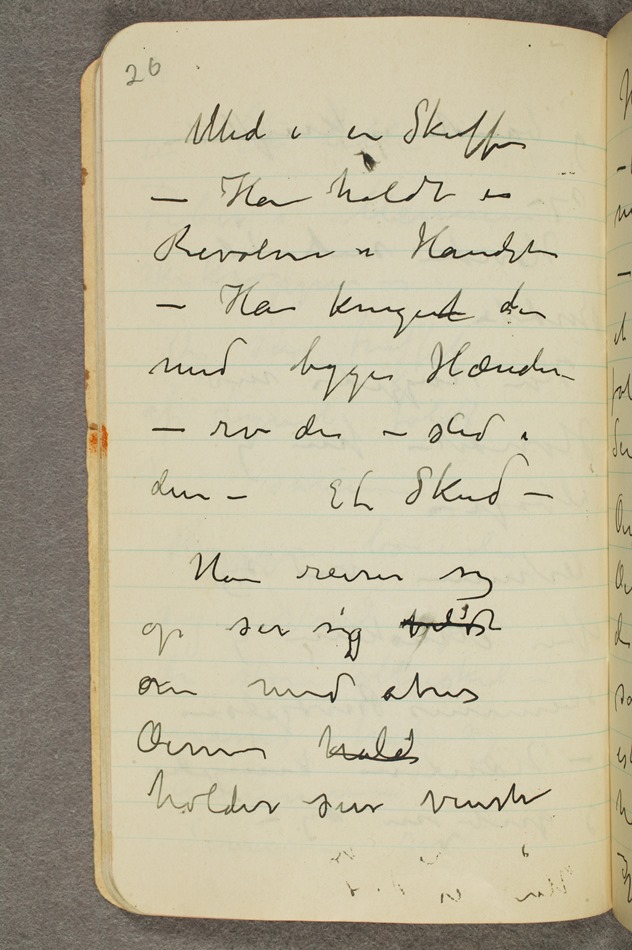 26
Med i en Skuffe
— Han holdt en
Revolver i Haanden
— Han knuget den
med begge Hænder
— rev den — sled i
den — Et Skud —
Han reiser sig
op ser sig vildt
om med store
Øinene holdt
holder sin venstre